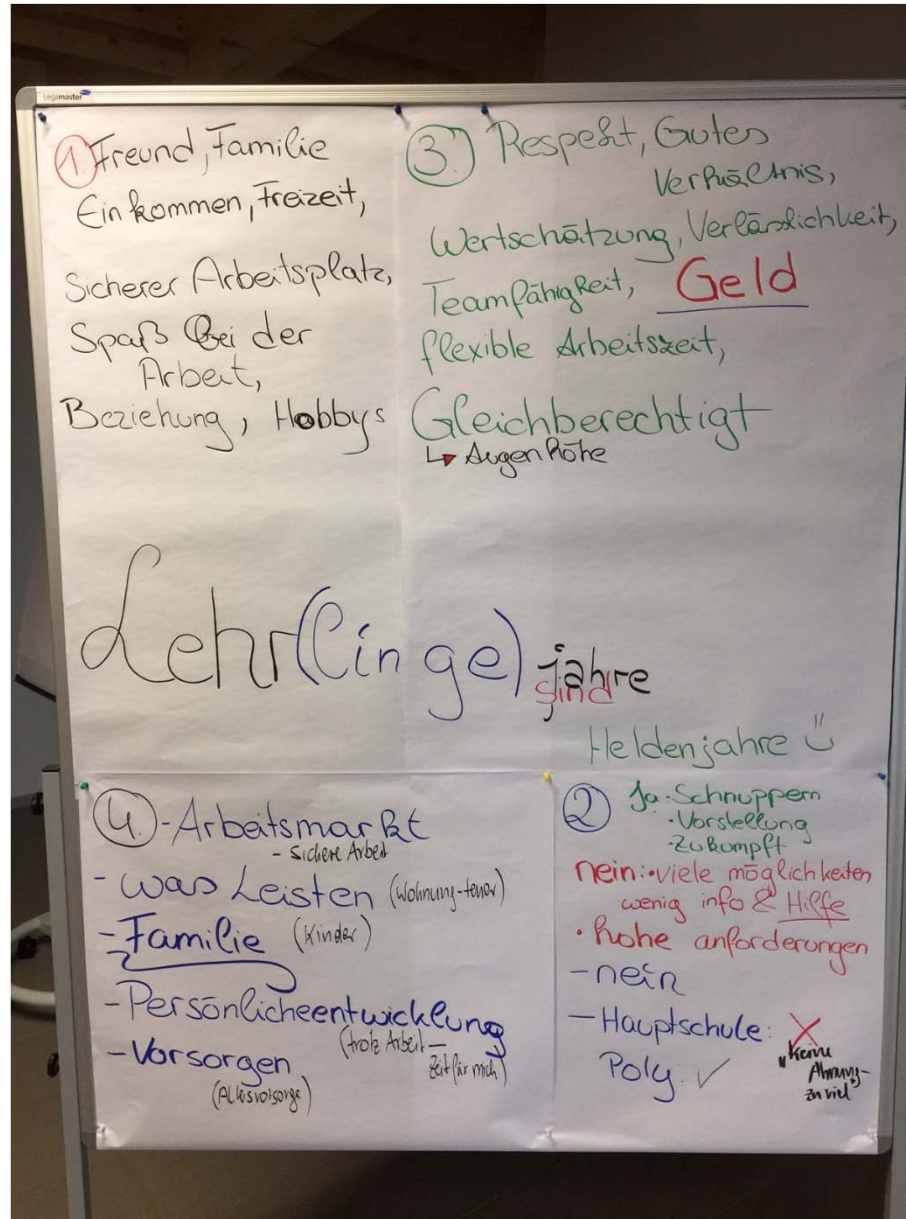 Legamaster
1. Freund, Familie
Einkommen, Freizeit,
Sicherer Arbeitsplatz,
Spaß Bei der
Arbeit,
Beziehung, Hobbys
3. Respekt, Gutes
Verhältnis,
Wertschätzung, Verlässlichkeit,
Teamfähigkeit, Geld
flexible Arbeitszeit,
Gleichberechtigt
↳ Augenhöhe
Lehr(linge) jahre
sind
Heldenjahre
4. - Arbeitsmarkt
- Sichere Arbeit
- was Leisten (Wohnung-teuer)
- Familie (Kinder)
- Persönlicheentwicklung
(trotz Arbeit -
Zeit für mich)
- Vorsorgen
(Altersvorsorge)
2 Ja · Schnuppern
· Vorstellung
· Zukumpft
nein: · viele möglichkeiten
wenig info & Hilfe
· hohe anforderungen
- nein
- Hauptschule: X
Poly: ✓
"Keine
Ahnung-
zu viel"